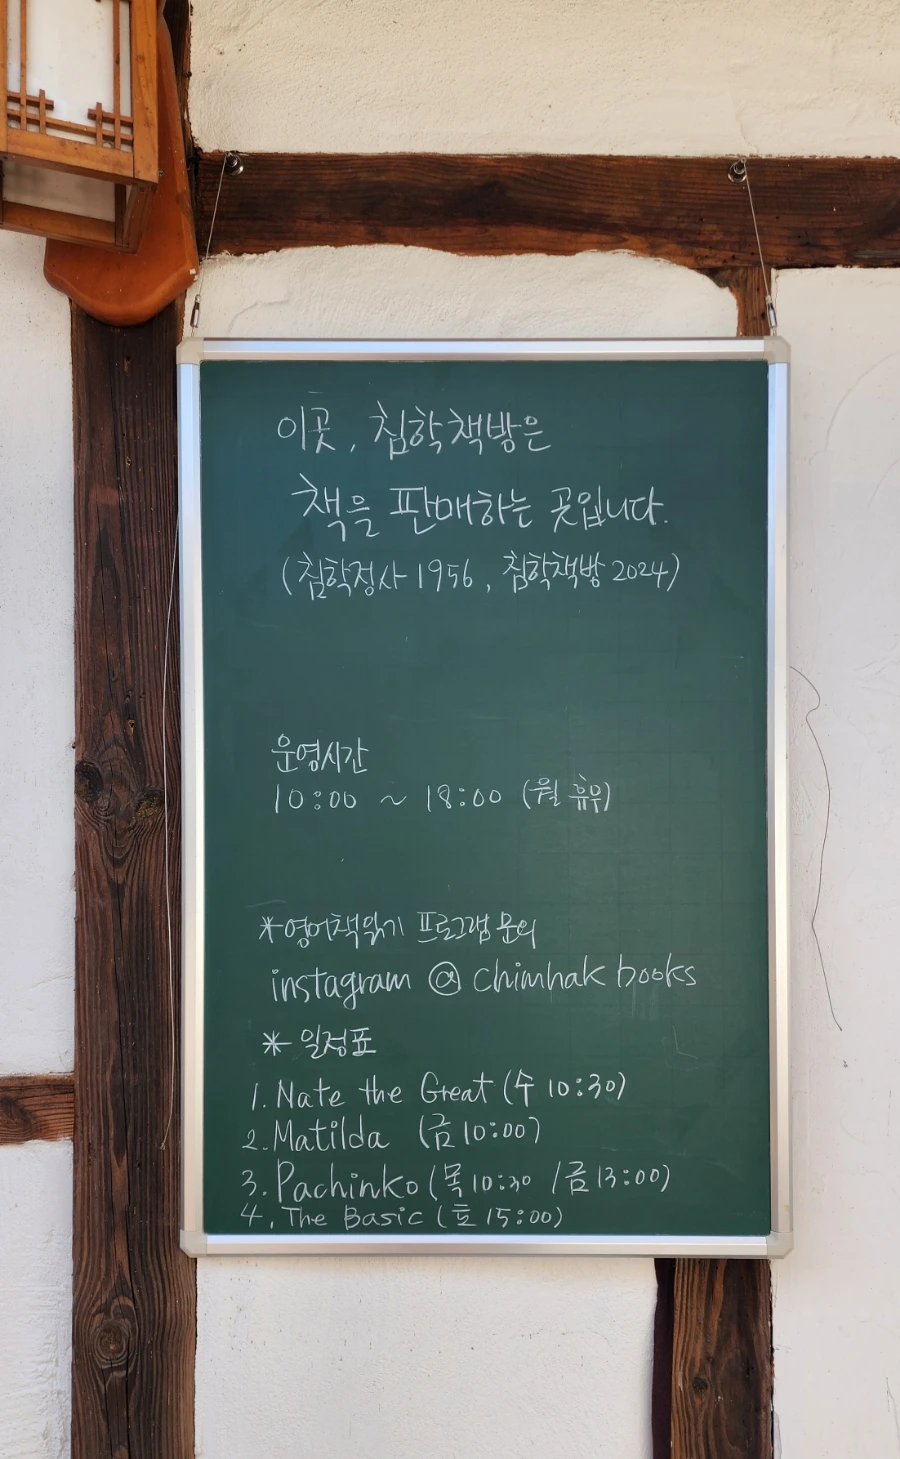 이곳, 침학책방은
책을 판매하는 곳입니다.
(침학정사 1956, 침학책방 2024)
운영시간
10:00 ~ 18:00 (월 휴무)
*영어책읽기 프로그램 문의
instagram @ chimhak books
* 일정표
1. Nate the Great (수 10:30)
2. Matilda (금 10:00)
3. Pachinko (목 10:30 / 금 13:00)
4. The Basic (토 15:00)